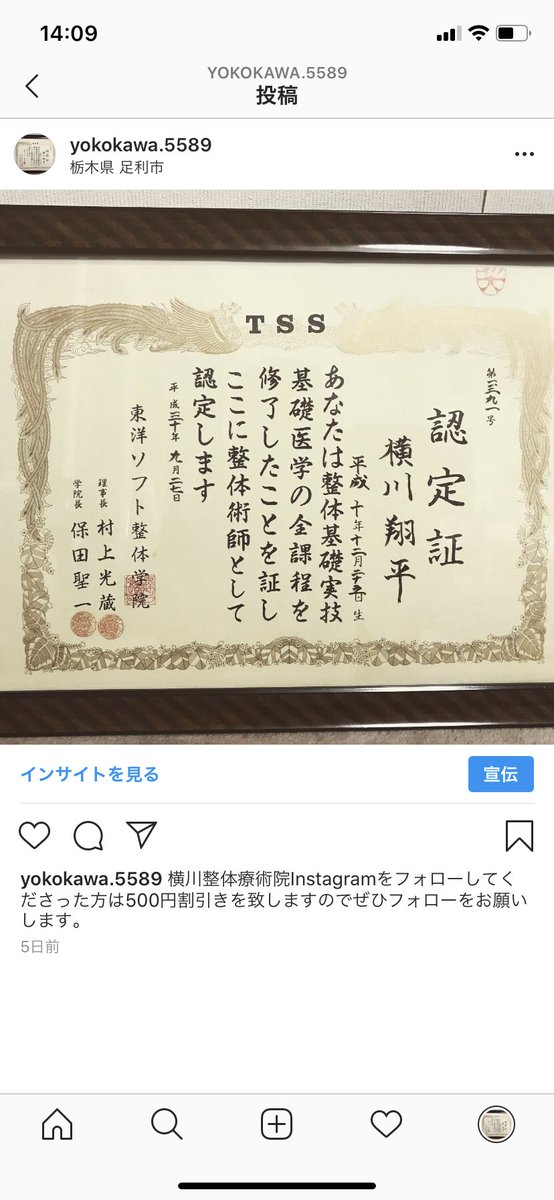 14:09
YOKOKAWA.5589
投稿
yokokawa.5589
栃木県 足利市
TSS
第一三九一号
認定証
横川翔平
平成 十年十二月二十五日 生
あなたは整体基礎実技
基礎医学の全課程を
修了したことを証し
ここに整体術師として
認定します
平成三十年九月二七日
東洋ソフト整体学院
理事長 村上光蔵
学院長 保田聖一
インサイトを見る
宣伝
yokokawa.5589 横川整体療術院Instagramをフォローしてく
ださった方は500円割引きを致しますのでぜひフォローをお願い
します。
5日前